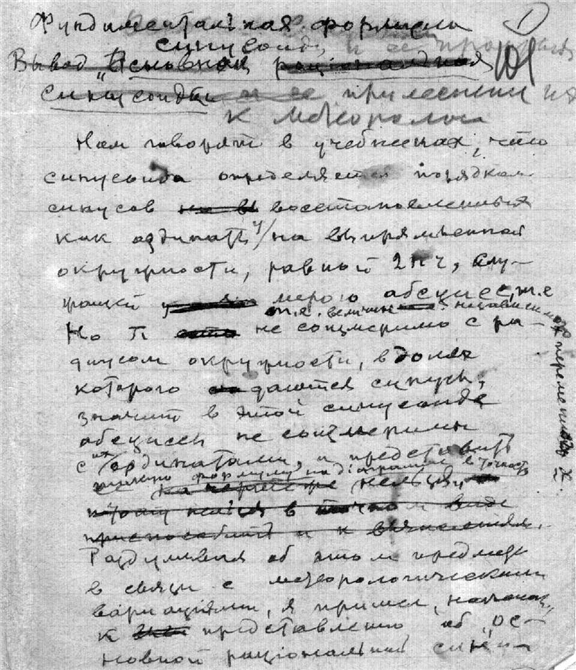 Фундаментальная формула
синусоиды и ее
Вывод "Основной рациональная
синусоиды и ее применения
к метеороло
Нам говорят в учебниках, что
синусоида определяется порядком
синусов восстановленных
как ординаты на выпрямленной
окружности, равный 2πч, слу-
жащей мерою абсцисс, т.е
т.е. величин независимой переменной X.
Но π не соизмеримо с ра-
диусом окружности, в долях
которого даются синусы,
значит в этой синусоиде
абсциссы не соизмеримы
с их ординатами, и представить
формулу на диаграмме в точности
нельзя
в точном виде
и к вычислениям.
Раздумывая об этом предмете
в связи с метеорологическими
вариациями, я пришел, наконец,
к представлению об "ос-
новной рациональной сину-